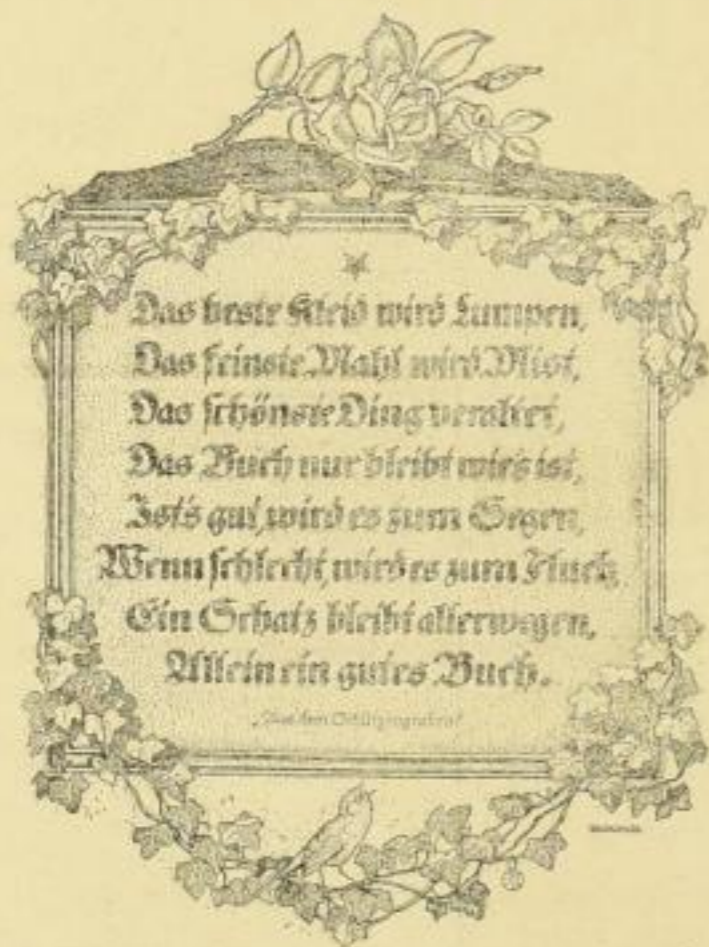 Das beste Kleid wird Lumpen,
Das feinste Mahl wird Mist,
Das schönste Ding veraltet,
Das Buch nur bleibt wie's ist,
Ist's gut, wird es zum Segen,
Wenn schlecht, wird es zum Fluch,
Ein Schatz bleibt allerwegen,
Allein ein gutes Buch.
„Aus dem